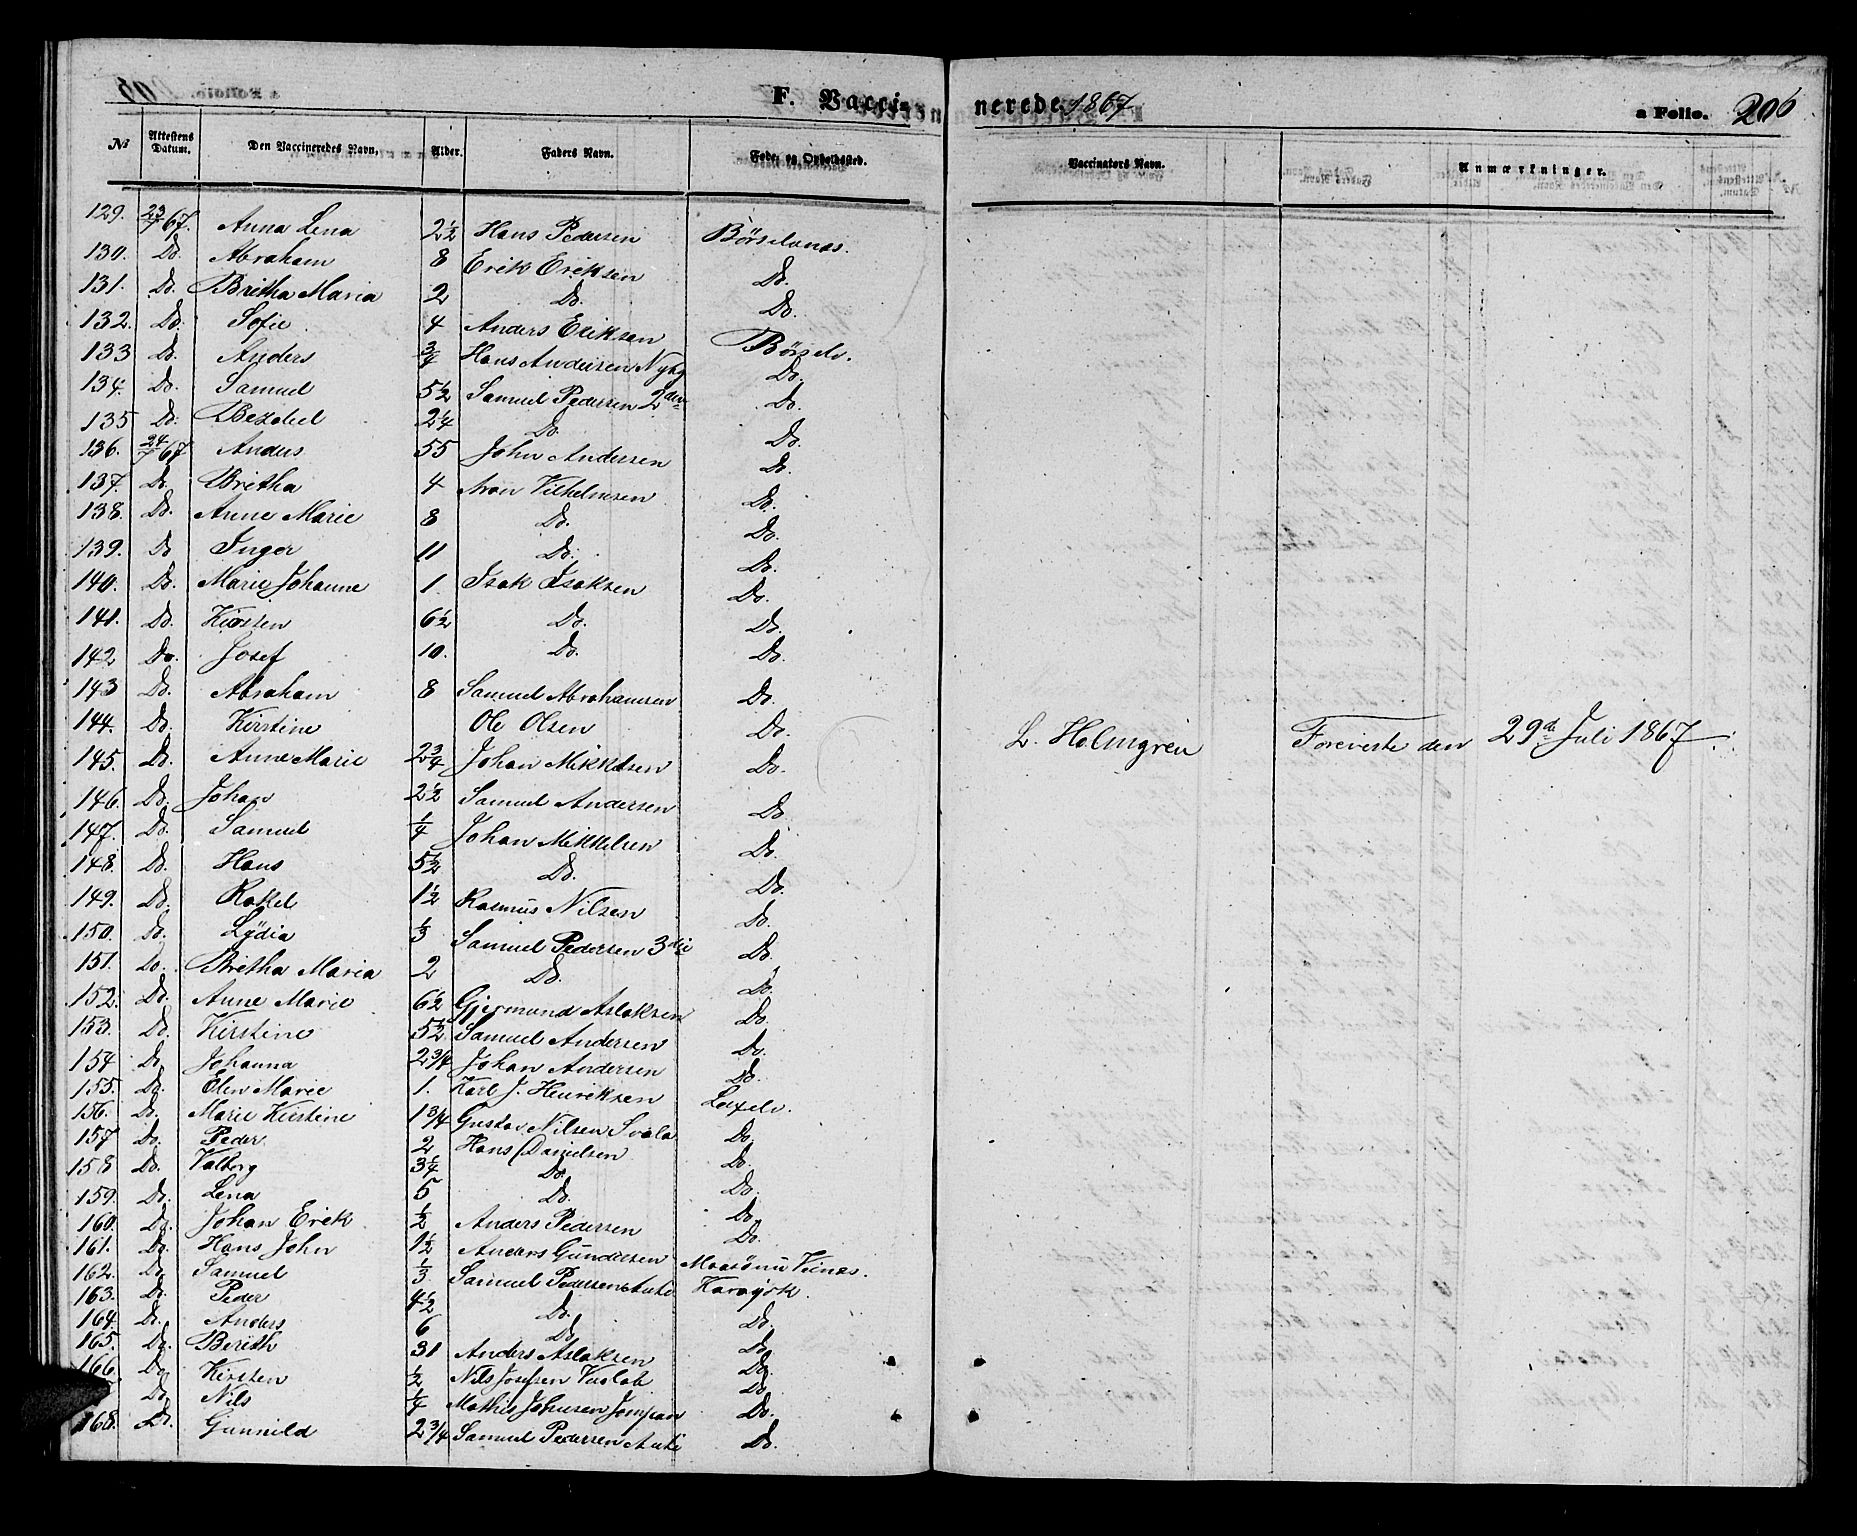 F. Vaccinerede 1867 a Folio. 206
№ Attestens Datum. Den Vaccineredes Navn. Alder. Faders Navn. Føde- og Opholdssted. Vaccinators Navn. Anmærkninger.
129. 23/7 67. Anna Lena 2½ Hans Pedersen Børselvnæs.
130. Do. Abraham 8 Erik Eriksen Do.
131. Do. Britha Maria 2 Do. Do.
132. Do. Sofie 4 Anders Eriksen Børselv.
133 Do. Anders ¾ Hans Andersen Do.
134. Do. Samuel 5½ Samuel Pedersen 2den Do.
135 Do. Bezaleel 2¼ Do. Do.
136. 24/7 67 Anders 55 John Andersen Do.
137. Do. Britha 4 Aron Vilhelmsen Do.
138. Do. Anne Marie 8 Do. Do.
139. Do Inger 11 Do. Do.
140. Do. Marie Johanne 1. Isak Isaksen Do.
141. Do. Kirsten 6½ Do. Do.
142 Do. Josef 10. Do. Do.
143 Do. Abraham 8 Samuel Abrahamsen Do.
144. Do. Kirstine Ole Olsen Do. L. Holmgren Foreviste den 29de Juli 1867.
145. Do. Anne Marie 2¾ Johan Mikkelsen Do.
146. Do. Johan 2½ Samuel Andersen Do.
147. Do. Samuel ¼ Johan Mikkelsen Do.
148. Do. Hans 5½ Do. Do.
149. Do. Rakel 1½ Rasmus Nilsen Do.
150. Do. Lydia ⅓ Samuel Pedersen 3die Do.
151. Do. Britha Maria 2 Do. Do.
152. Do. Anne Marie 6½ Gjermund Aslaksen Do.
153. Do. Kirstine 5½ Samuel Andersen Do.
154 Do. Johanna 2¾ Johan Andersen Do.
155. Do. Elen Marie 1. Karl J. Henriksen Laxelv.
156. Do. Marie Kirstine 1¾ Gustav Nilsen Svala Do.
157 Do. Peder 2 Hans Danielsen Do.
158 Do. Valborg 3¼ Do. Do.
159. Do. Lena 5 Do. Do.
160. Do. Johan Erik ½ Anders Pedersen Do.
161. Do. Hans John 1½ Anders Gundersen
162. Do. Samuel ⅓ Samuel Pedersen Anti Karasjok.
163. Do. Peder 4½ Do. Do.
164. Do. Anders 6 Do. Do.
165. Do. Berith 31 Anders Aslaksen Do.
166. Do. Kirsten ½ Nils Josefsen Do.
Do. Nils ¼ Mathis Johnsen Do.
168. Do. Gunnild 2¾ Samuel Pedersen Anti Do.